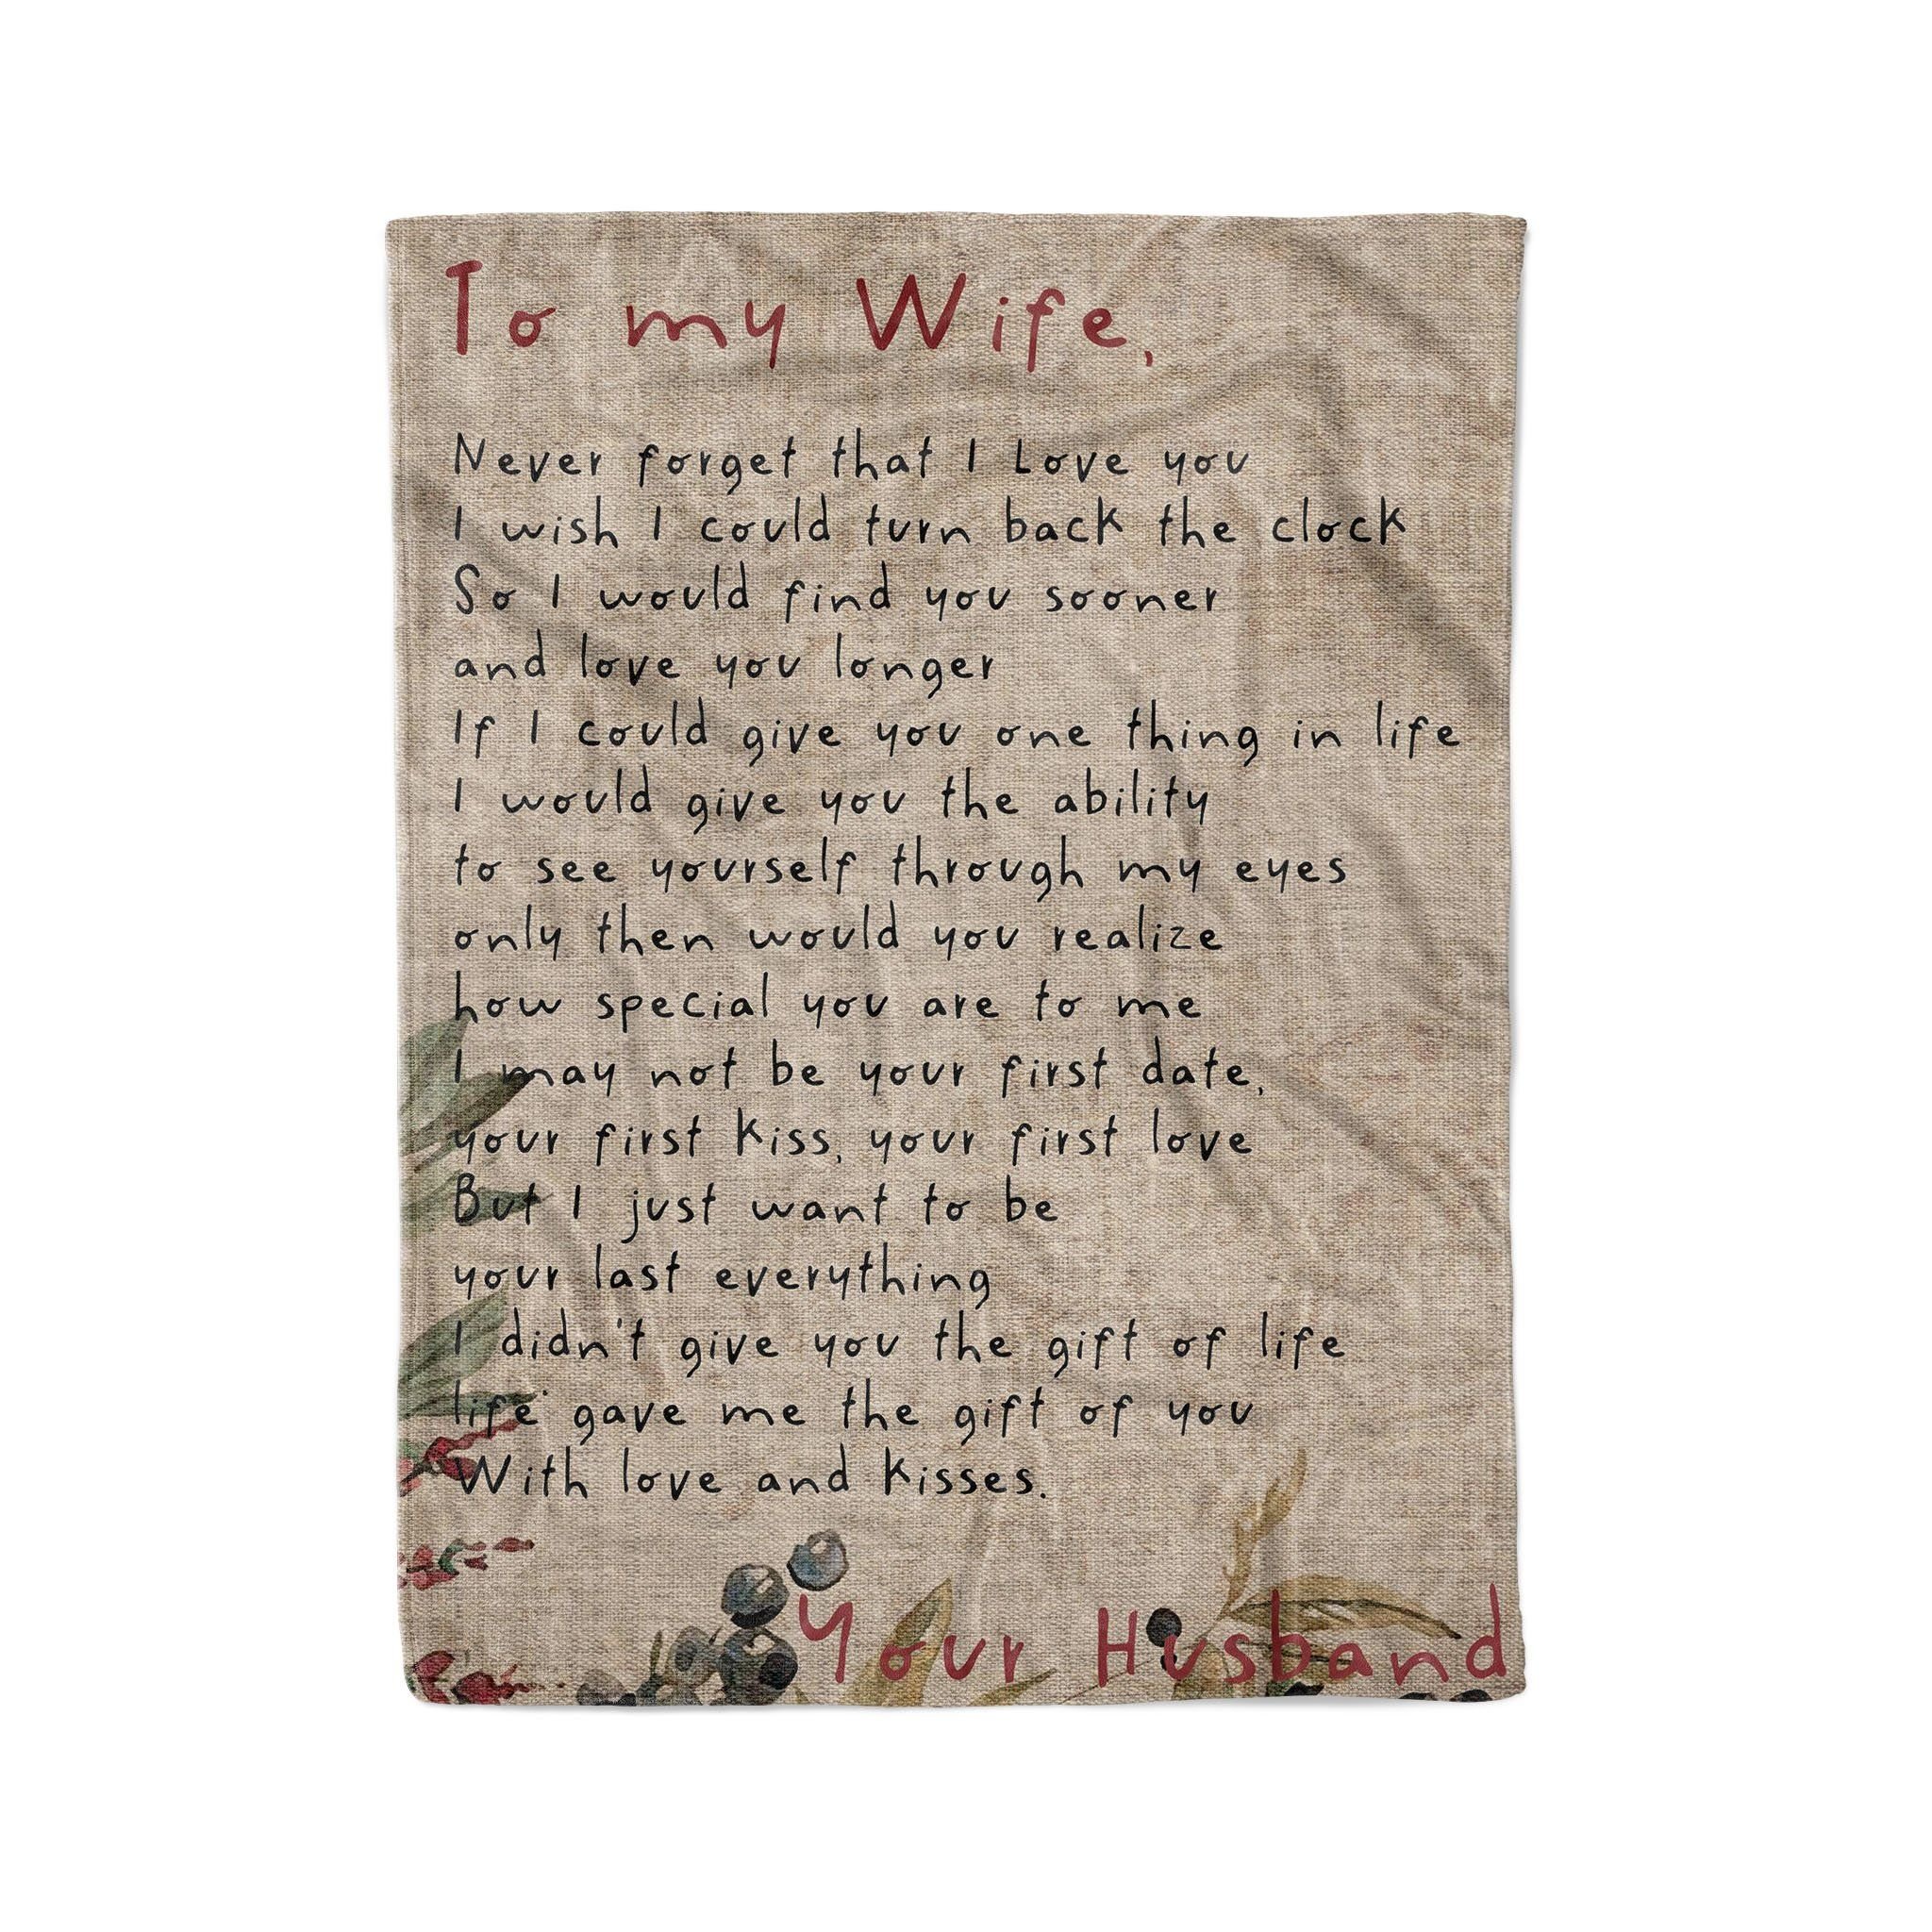 To my Wife,
Never forget that I Love you
I wish I could turn back the clock
So I would find you sooner
and love you longer
If I could give you one thing in life
I would give you the ability
to see yourself through my eyes
only then would you realize
how special you are to me
I may not be your first date,
your first kiss, your first love
But I just want to be
your last everything
I didn't give you the gift of life
life gave me the gift of you
With love and kisses.
Your Husband